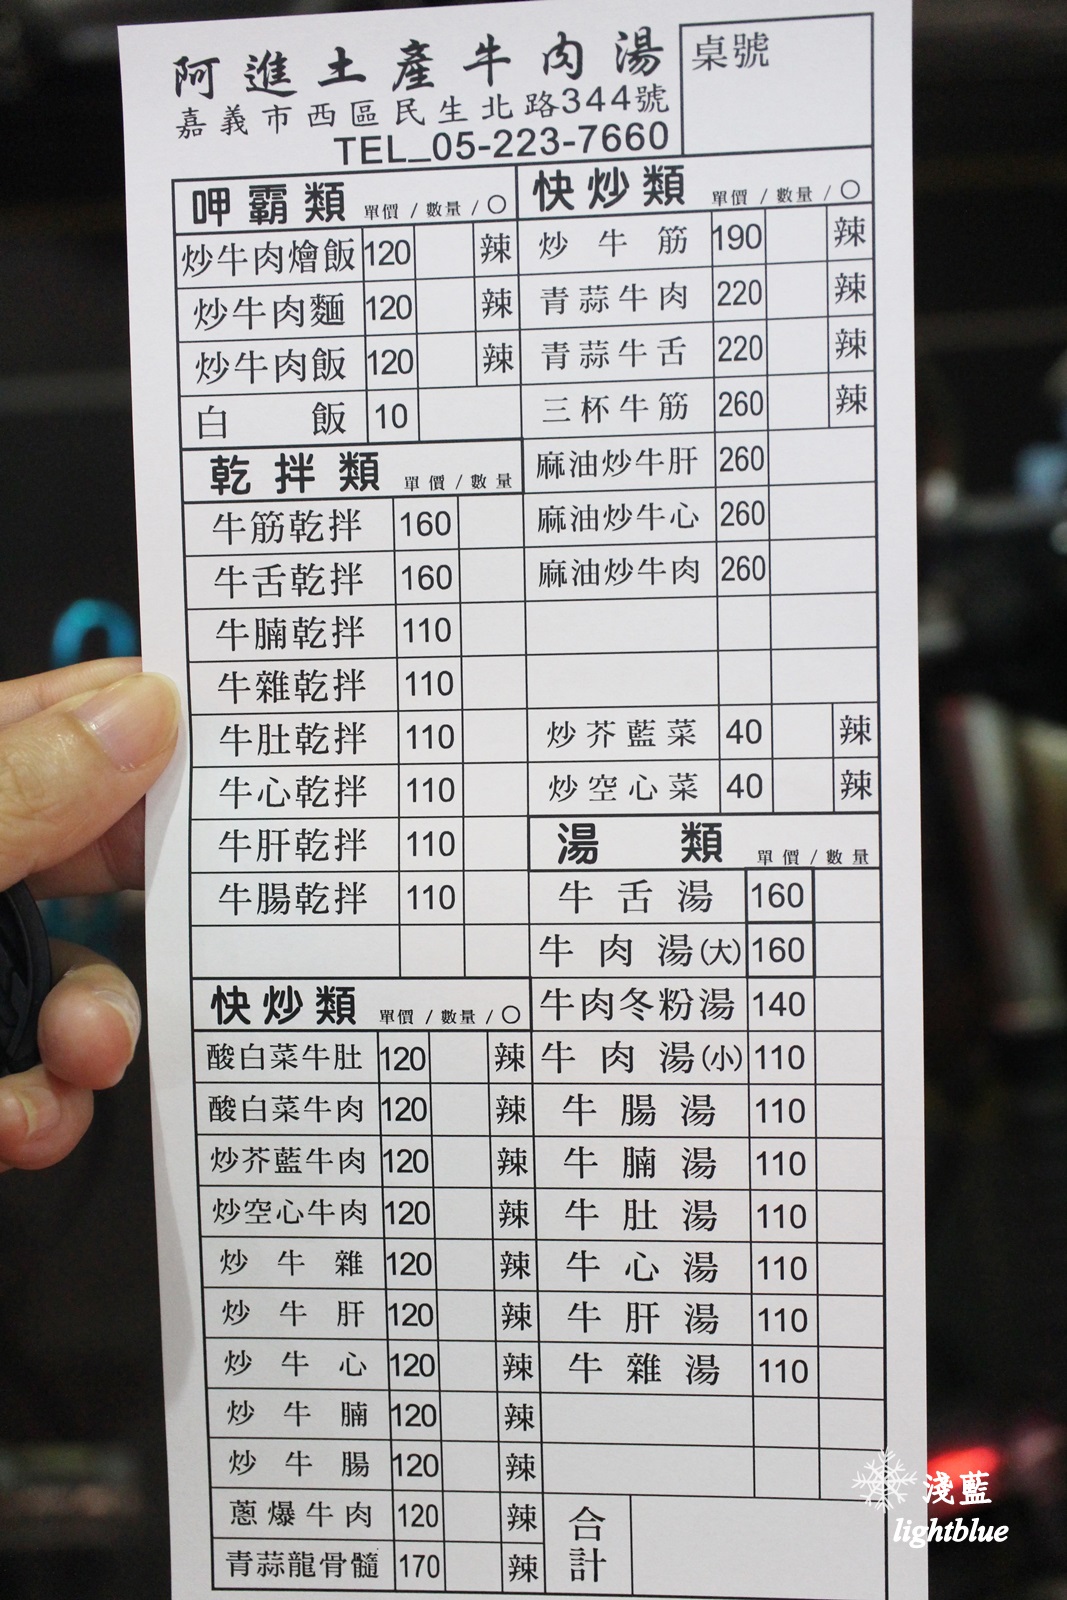 阿進土產牛肉湯
嘉義市西區民生北路344號
TEL_05-223-7660
桌號
呷霸類 單價/數量/○
炒牛肉燴飯 120 辣
炒牛肉麵 120 辣
炒牛肉飯 120 辣
白飯 10
乾拌類 單價/數量
牛筋乾拌 160
牛舌乾拌 160
牛腩乾拌 110
牛雜乾拌 110
牛肚乾拌 110
牛心乾拌 110
牛肝乾拌 110
牛腸乾拌 110
快炒類 單價/數量/○
酸白菜牛肚 120 辣
酸白菜牛肉 120 辣
炒芥藍牛肉 120 辣
炒空心牛肉 120 辣
炒牛雜 120 辣
炒牛肝 120 辣
炒牛心 120 辣
炒牛腩 120 辣
炒牛腸 120 辣
蔥爆牛肉 120 辣
青蒜龍骨髓 170 辣
快炒類 單價/數量/○
炒牛筋 190 辣
青蒜牛肉 220 辣
青蒜牛舌 220 辣
三杯牛筋 260 辣
麻油炒牛肝 260
麻油炒牛心 260
麻油炒牛肉 260
炒芥藍菜 40 辣
炒空心菜 40 辣
湯類 單價/數量
牛舌湯 160
牛肉湯(大) 160
牛肉冬粉湯 140
牛肉湯(小) 110
牛腸湯 110
牛腩湯 110
牛肚湯 110
牛心湯 110
牛肝湯 110
牛雜湯 110
合計
淺藍
lightblue